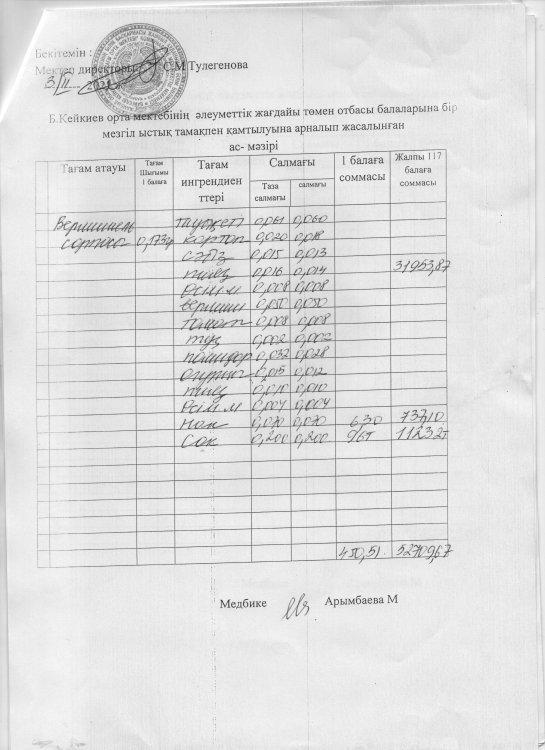 Бекітемін :
Мектеп директоры: С.М.Тулегенова
Б.Кейкиев орта мектебінің әлеуметтік жағдайы төмен отбасы балаларына бір
мезгіл ыстық тамақпен қамтылуына арналып жасалынған
ас- мәзірі
Тағам атауы
Тағам
Шығымы
1 балаға
Тағам
ингрендиен
ттері
Салмағы
Таза
салмағы
салмағы
1 балаға
соммасы
Жалпы 117
балаға
соммасы
0,061 0,060
картоп 0,020 0,018
сәбіз 0,015 0,013
пияз 0,016 0,014 31953,87
0,008 0,008
0,050 0,050
томат 0,008 0,008
тұз 0,002 0,002
помидор 0,032 0,028
0,015 0,012
пияз 0,010 0,010
0,004 0,004
нан 0,070 0,070 6.30
сок 0,200 0,200 96т 11232т
450,51. 52709,67
Медбике Арымбаева М